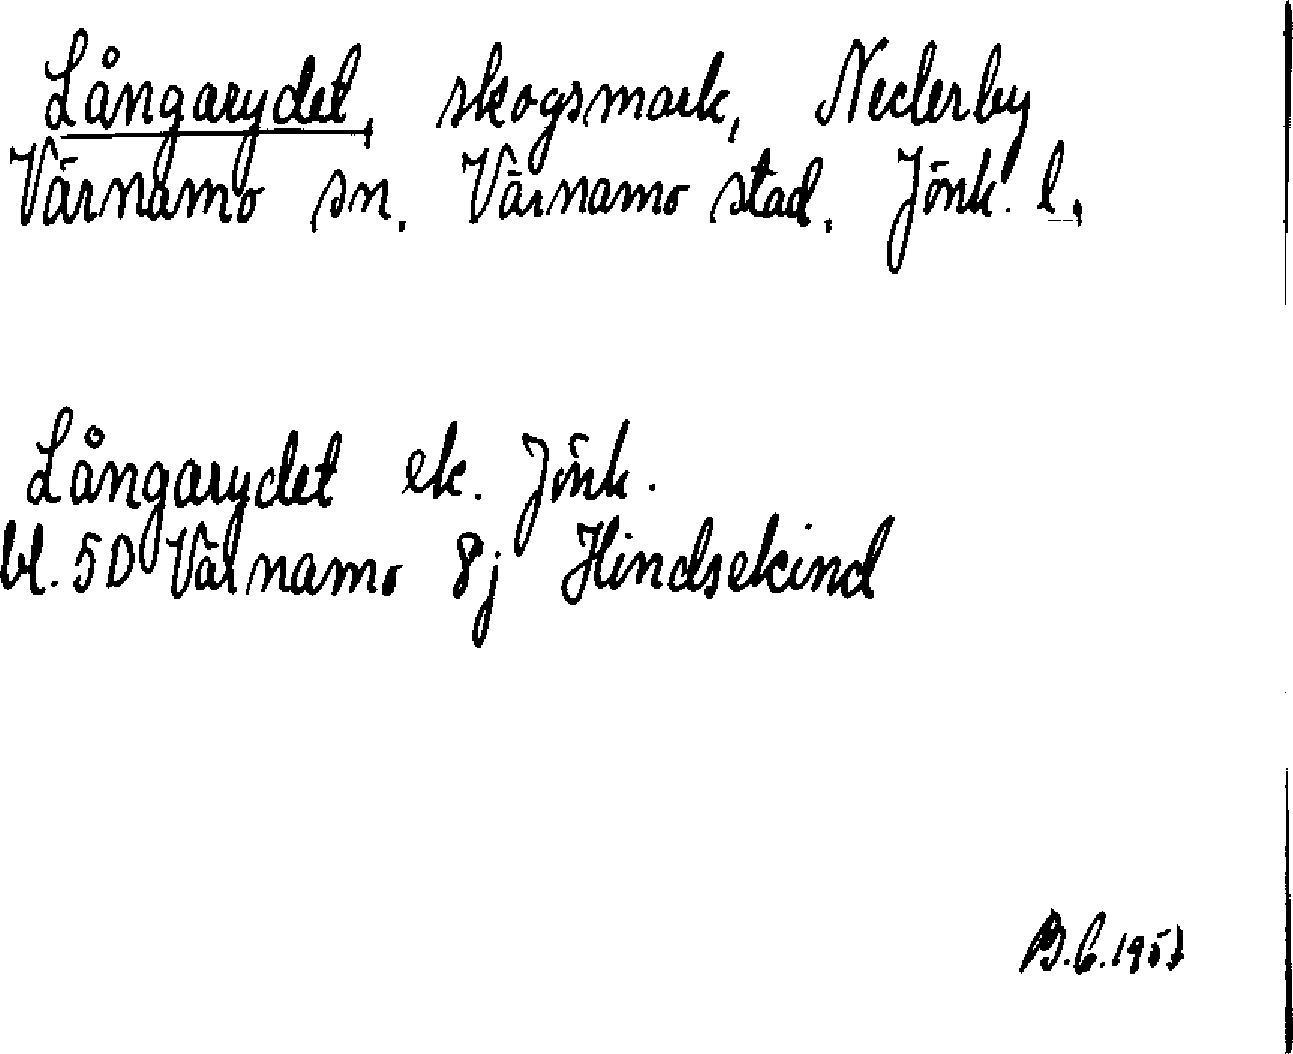 Långarydet, skogsmark, Nederby
Värnamo sn. Värnamo stad. Jönk. l.
Långarydet ek. Jönk.
bl. 5D Värnamo 8j Hindsekind
B.C. 1957